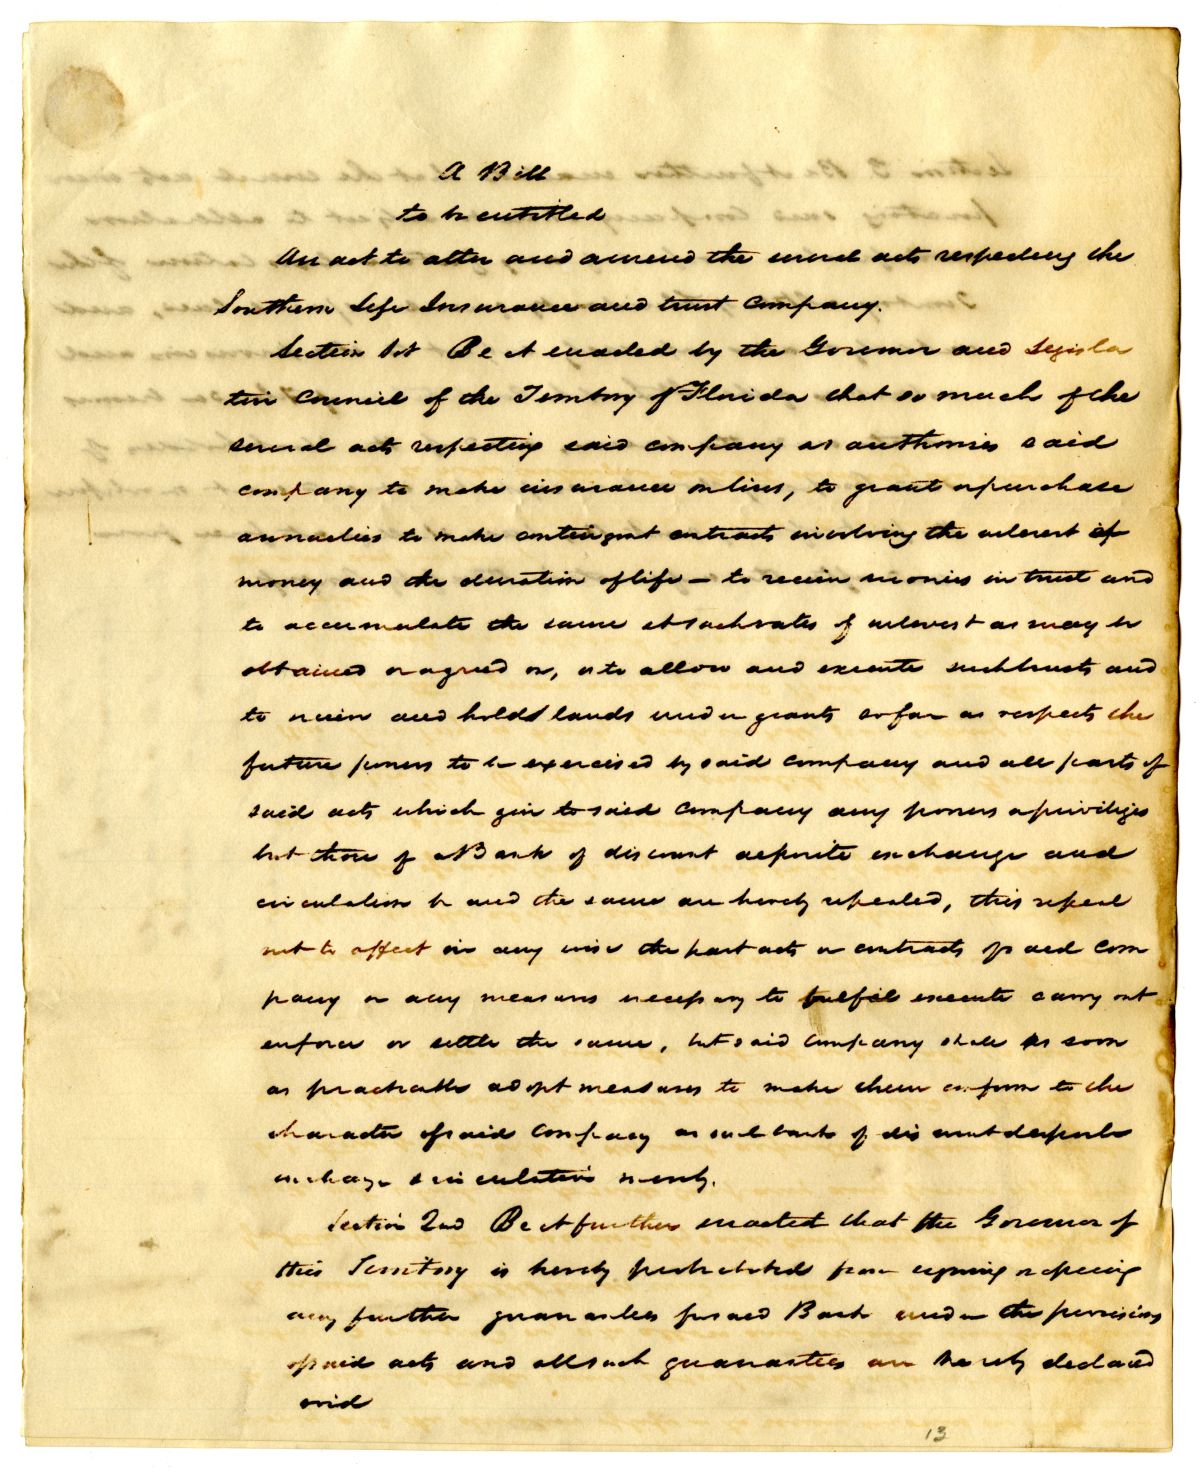 A Bill
to be entitled
An act to alter and amend the several acts respecting the
Southern Life Insurance and trust Company.
Section 1st Be it enacted by the Governor and Legisla
tive Council of the Territory of Florida that so much of the
several acts respecting said company as authorises said
company to make insurance on lives, to grant or purchase
annuities to make contingent contracts involving the interest of
money and the duration of life — to receive monies in trust and
to accumulate the same at such rates of interest as may be
obtained or agreed on, or to allow and execute such trusts and
to receive and hold lands under grants so far as respects the
future powers to be exercised by said company and all parts of
said acts which give to said company any powers or priviliges
but those of a Bank of discount deposite exchange and
circulation be and the same are hereby repealed, this repeal
not to affect in any wise the past acts or contracts of said Com
pany or any measures necessary to fulfil execute carry out
enforce or settle the same, but said Company shall as soon
as practicable adopt measures to make them conform to the
character of said Company as such bank of discount deposite
exchange & circulation merely.
Section 2nd Be it further enacted that the Governor of
this Territory is hereby prohibited from signing or
any further guarantees for said Bank under the provisions
of said acts and all such guarantees are hereby declared
void
13